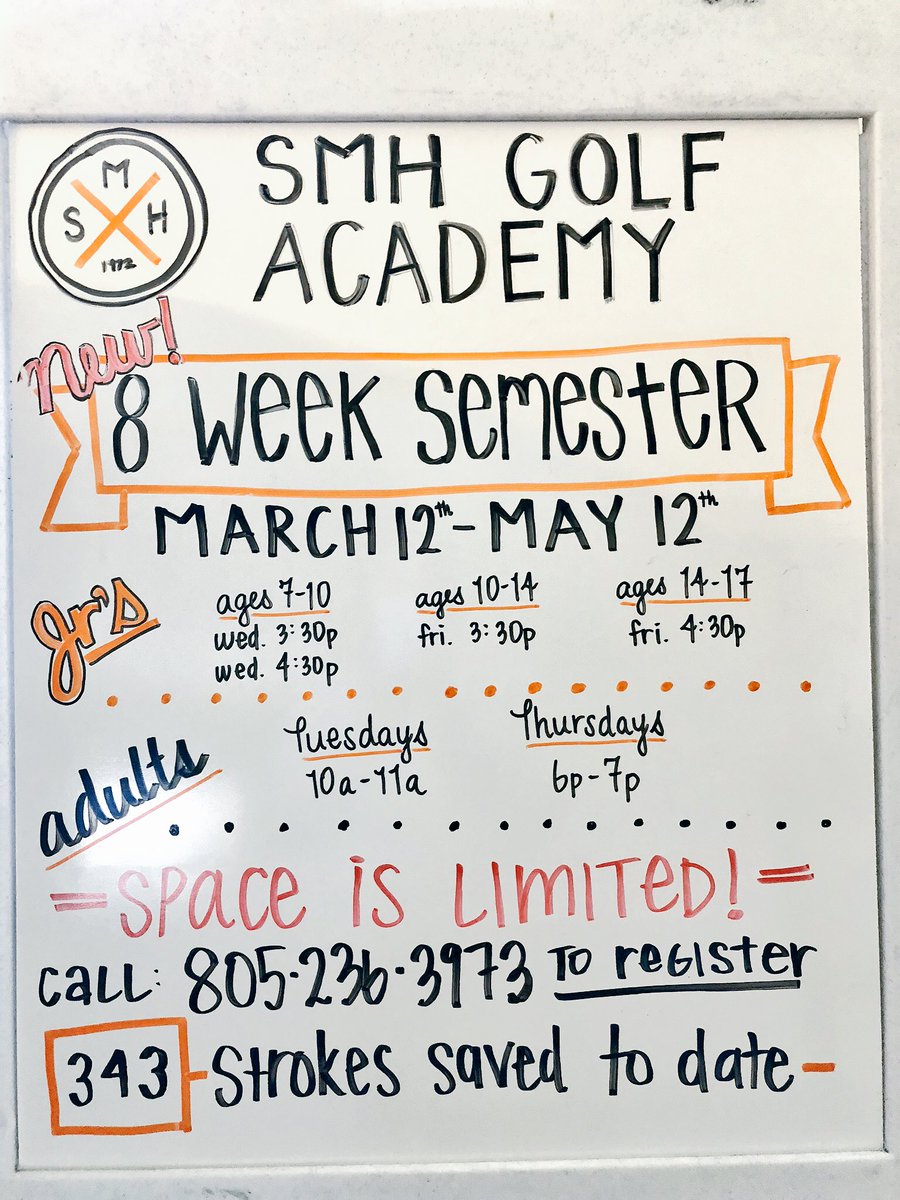 M
S H
1972
SMH GOLF
ACADEMY
new!
8 WEEK SEMESTER
MARCH 12th - MAY 12th
Jr's
ages 7-10
wed. 3:30p
wed. 4:30p
ages 10-14
fri. 3:30p
ages 14-17
fri. 4:30p
adults
Tuesdays
10a-11a
Thursdays
6p-7p
=SPACE IS LIMITED!=
CALL: 805-236-3973 TO REGISTER
343 - Strokes saved to date -